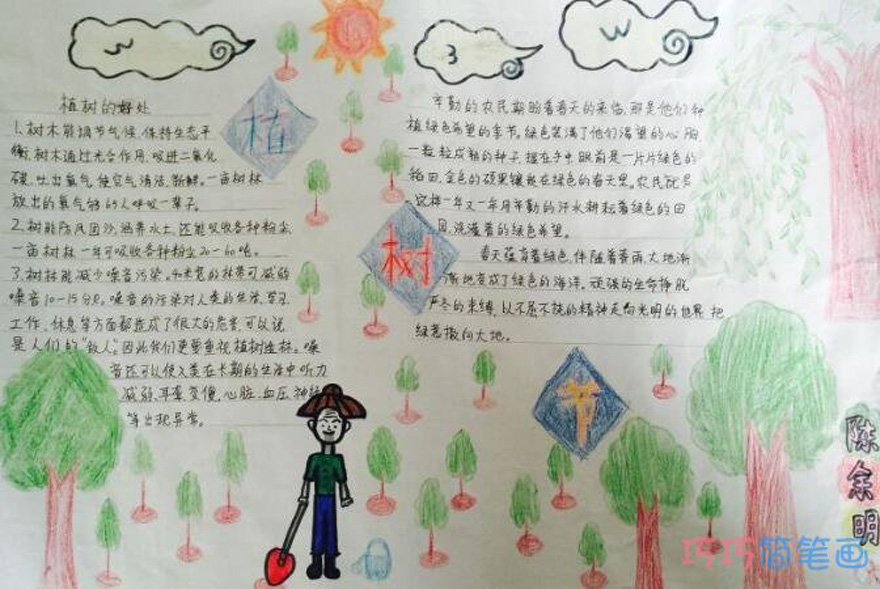 植树的好处
1、树木能调节气候,保持生态平
衡,树木通过光合作用,吸进二氧化
碳,吐出氧气,使空气清洁、新鲜。一亩树林
放出的氧气够65人呼吸一辈子。
2、树能防风固沙,涵养水土,还能吸收各种粉尘,
一亩树林一年可吸收各种粉尘20-60吨。
3、树林能减少噪音污染。40米宽的林带可减弱
噪音10-15分贝。噪音的污染对人类的生活、学习、
工作、休息等方面都造成了很大的危害,可以说
是人们的“敌人”。因此我们更要重视植树造林。噪
音还可以使人类在长期的生活中听力
减弱、耳聋、变傻,心脏、血压、神经
等出现异常。
植
树
节
辛勤的农民期盼着春天的来临,那是他们种
植绿色希望的季节。绿色装满了他们渴望的心胸,
一粒粒成熟的种子,握在手中,眼前是一片片绿色的
稻田,金色的硕果镶嵌在绿色的春天里。农民就是
这样一年又一年用辛勤的汗水耕耘着绿色的田
园,浇灌着的绿色希望。
春天蕴育着绿色,伴随着春雨,大地渐
渐地变成了绿色的海洋。顽强的生命挣脱
严冬的束缚,以不屈不挠的精神走向光明的世界,把
绿意撒向大地。
陈余明
巧巧简笔画